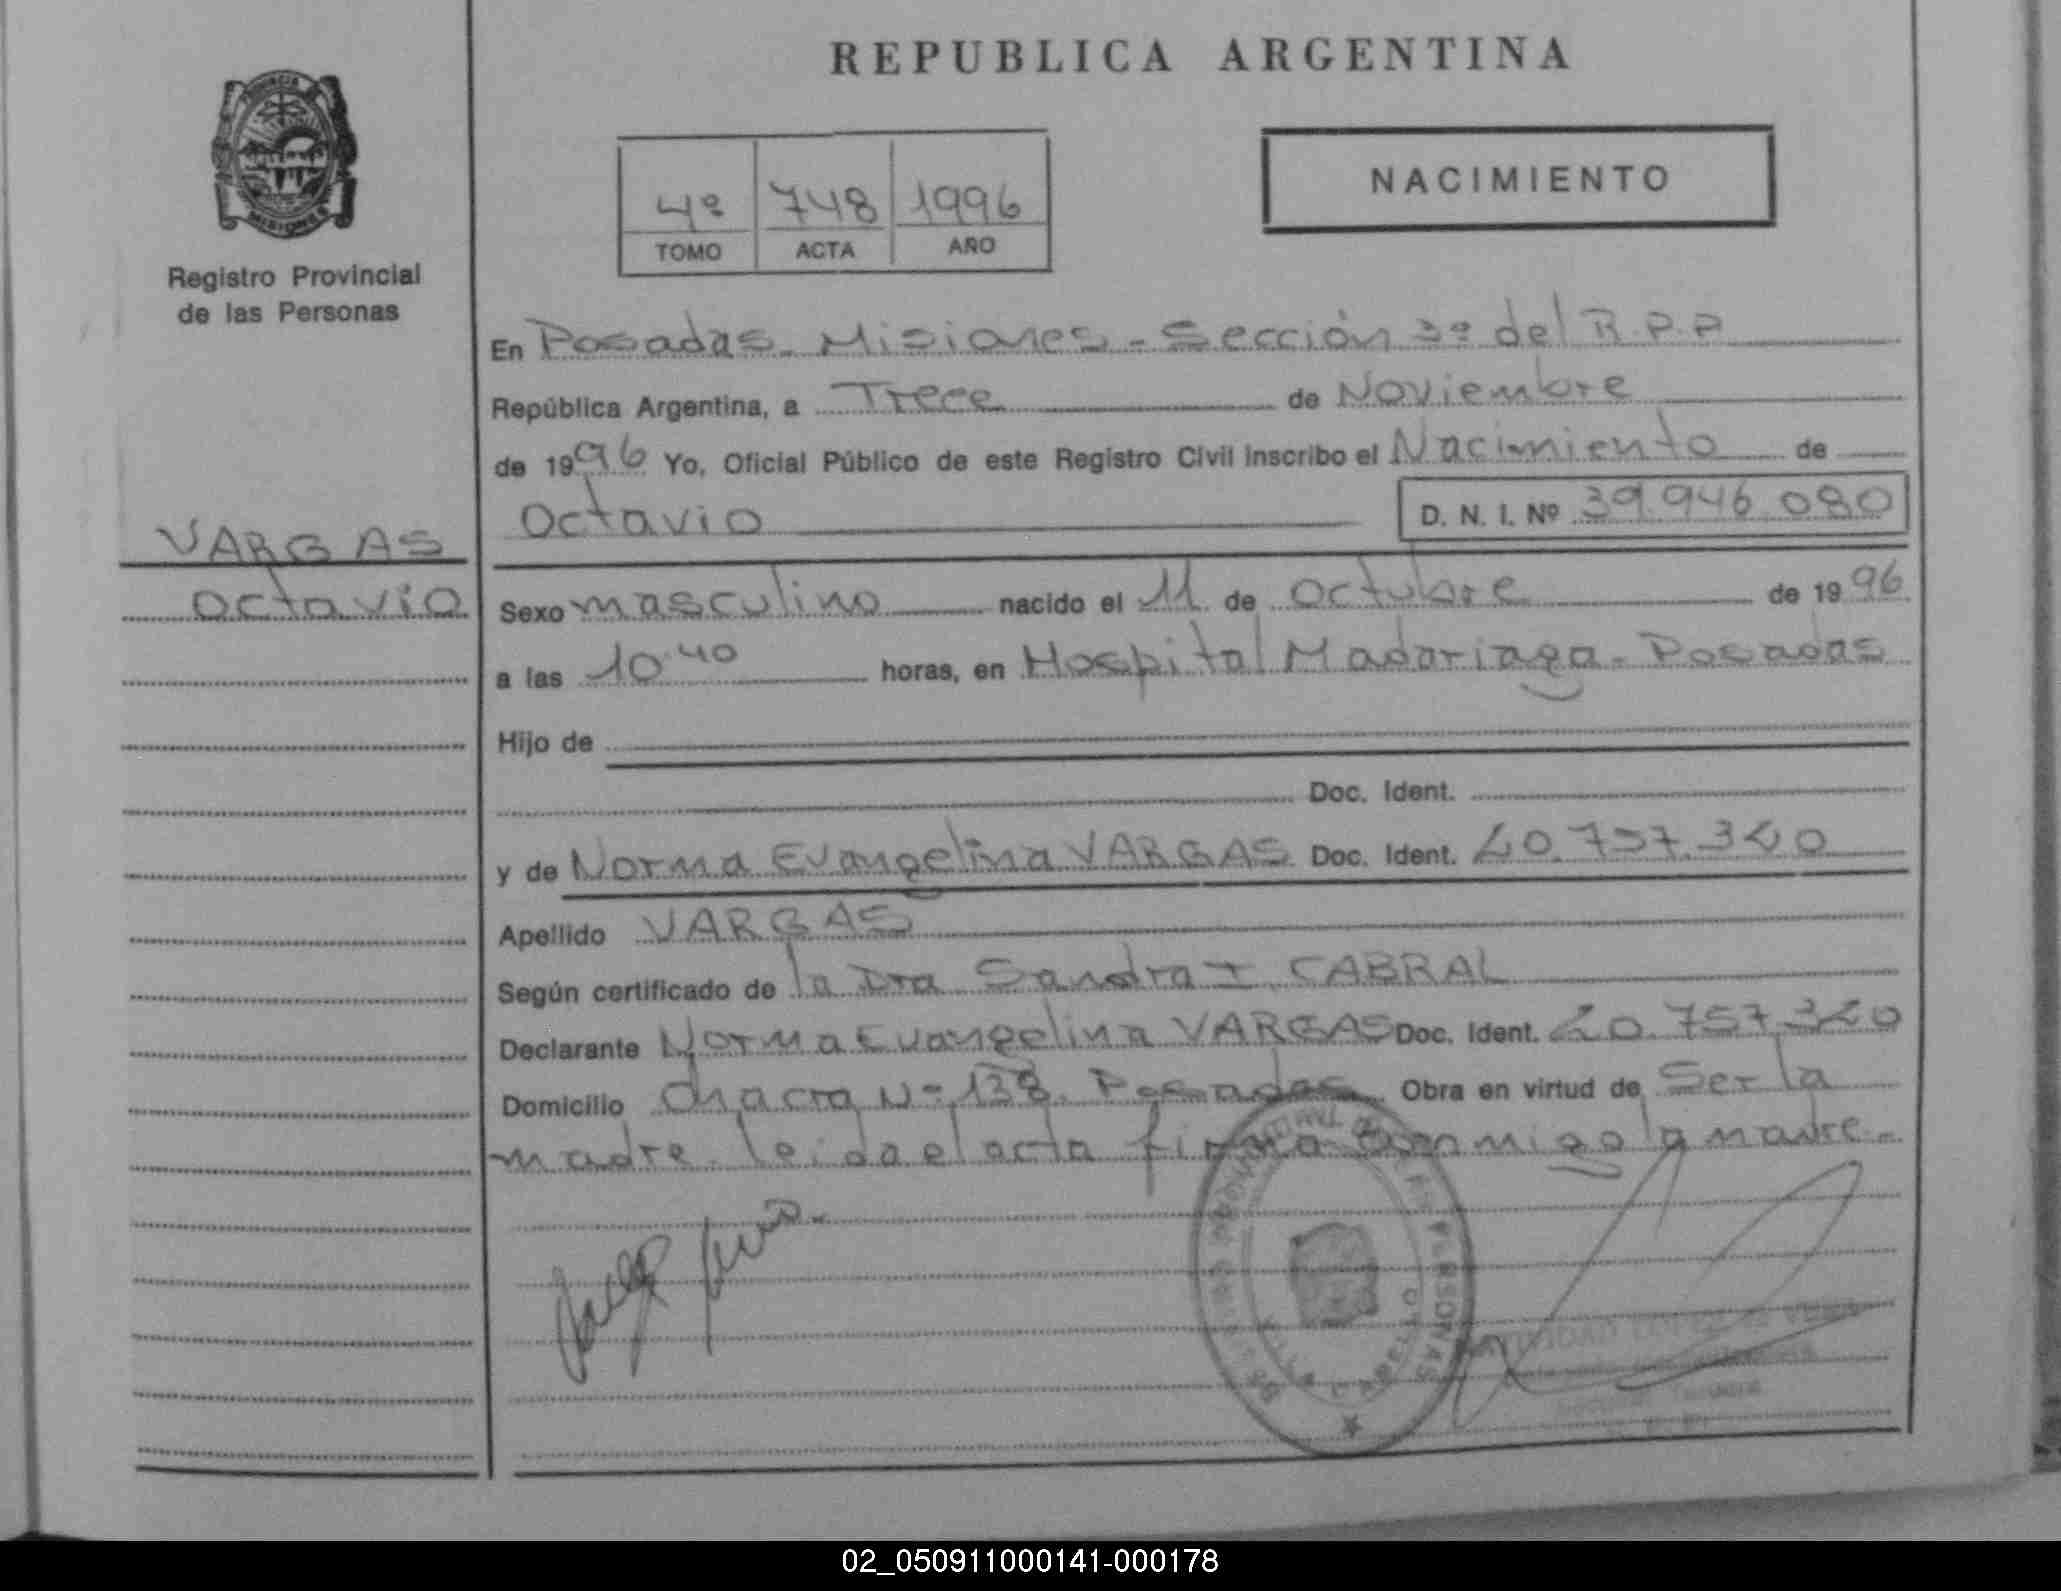 REPUBLICA ARGENTINA
PROVINCIA DE
MISIONES
Registro Provincial
de las Personas
NACIMIENTO
4º 748 1996
TOMO ACTA AÑO
En Posadas - Misiones - Sección 3º del R.P.P
República Argentina, a Trece de Noviembre
de 1996 Yo, Oficial Público de este Registro Civil inscribo el Nacimiento de
Octavio D. N. I. Nº 39.946.080
VARGAS
Octavio
Sexo masculino nacido el 11 de Octubre de 1996
a las 10.40 horas, en Hospital Madariaga - Posadas
Hijo de
Doc. Ident.
y de Norma Evangelina VARGAS Doc. Ident. 20.757.320
Apellido VARGAS
Según certificado de la Dra Sandra I. CABRAL
Declarante Norma Evangelina VARGAS Doc. Ident. 20.757.320
Domicilio Chacra Nº 138. Posadas Obra en virtud de Ser la
madre. leida el acta firma conmigo la madre.-
02_050911000141-000178